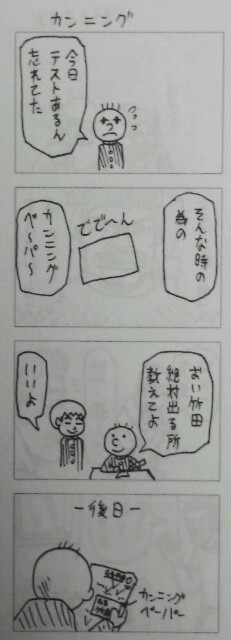 カンニング
今日
テストあるん
忘れてた
そんな時の
為の
でで〜ん
カンニング
ペ〜パ〜
おい竹田
絶対出る所
教えてよ
いいよ
ー後日ー
カンニング
ペーパー